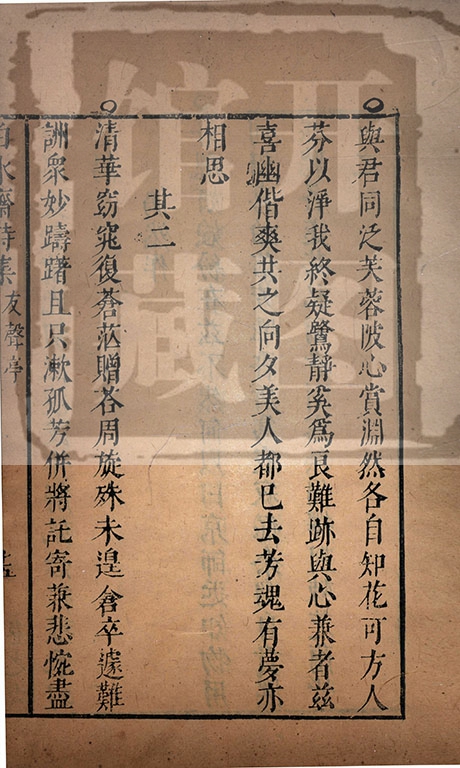 與君同泛芙蓉陂心賞淵然各自知花可方人
芬以淨我終疑鷺靜奚為良難跡與心兼者茲
喜幽偕爽共之向夕美人都已去芳魂有夢亦
相思
其二
清華窈窕復蒼茫贈荅周旋殊未遑倉卒遽難
詶眾妙躊躇且只漱孤芳併將託寄兼悲惋盡
水齋詩集 友聲亭